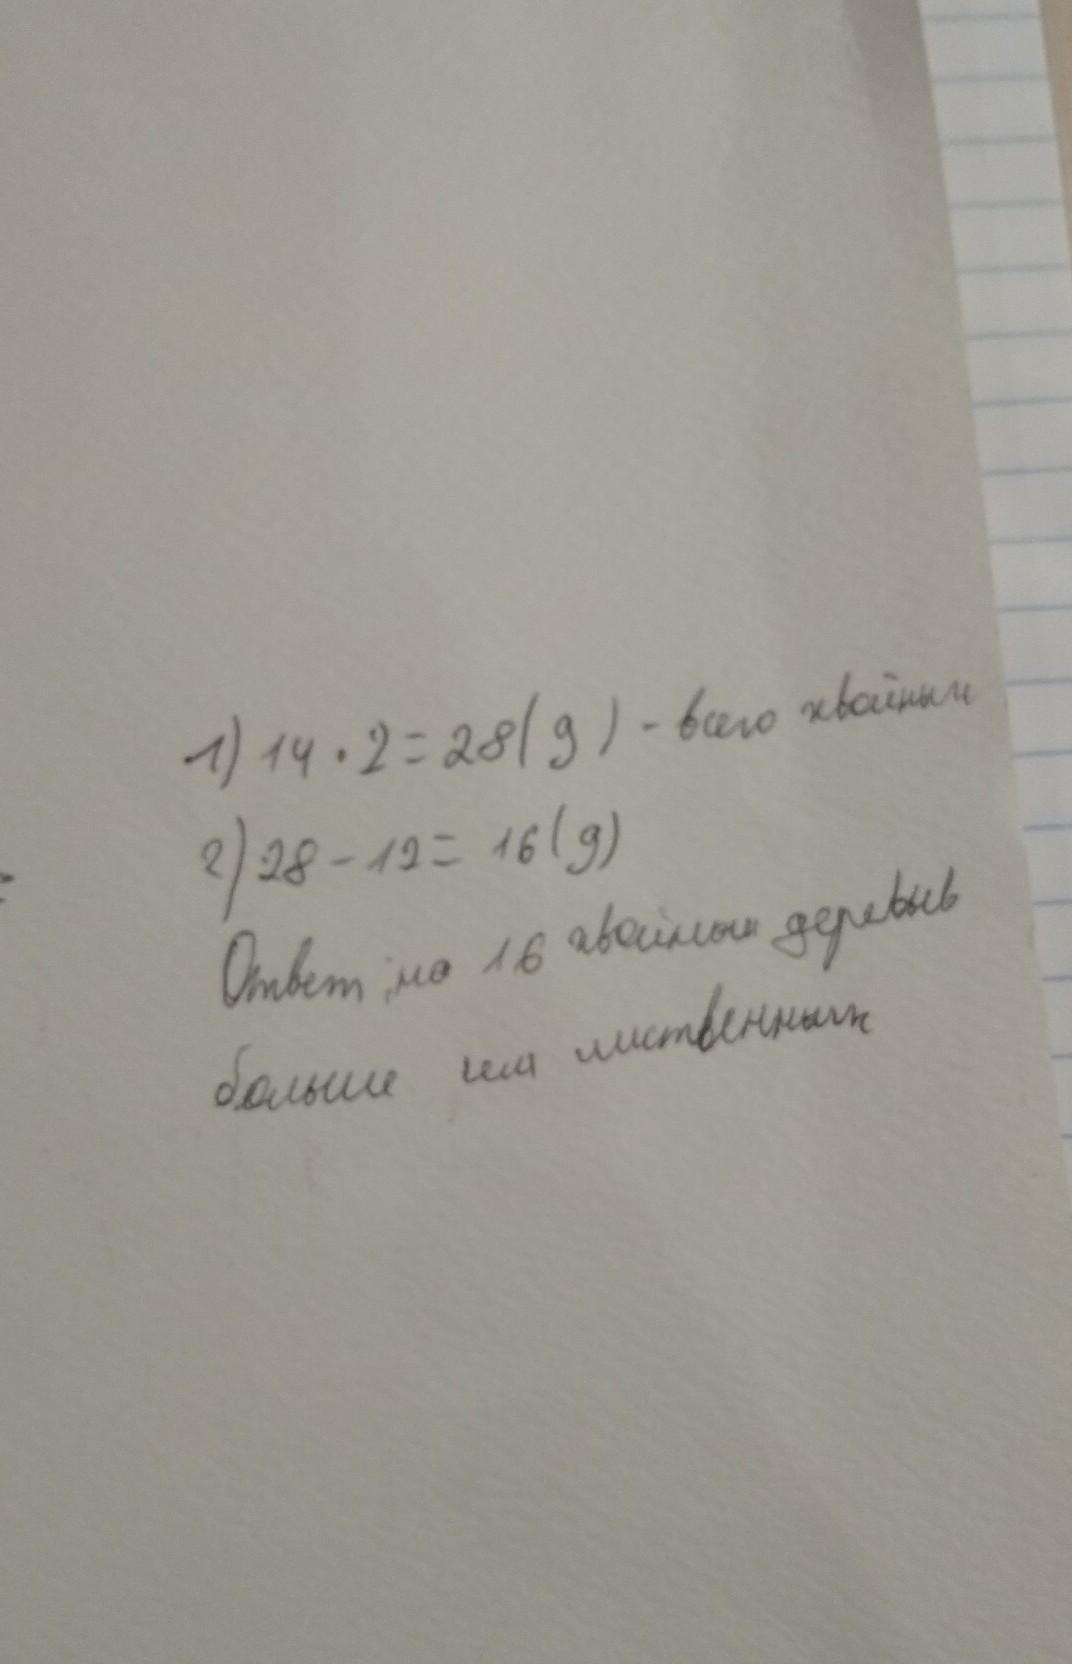 1) 14 · 2 = 28 (д) - всего хвойных
2) 28 - 12 = 16 (д)
Ответ: на 16 хвойных деревьев
больше чем лиственных